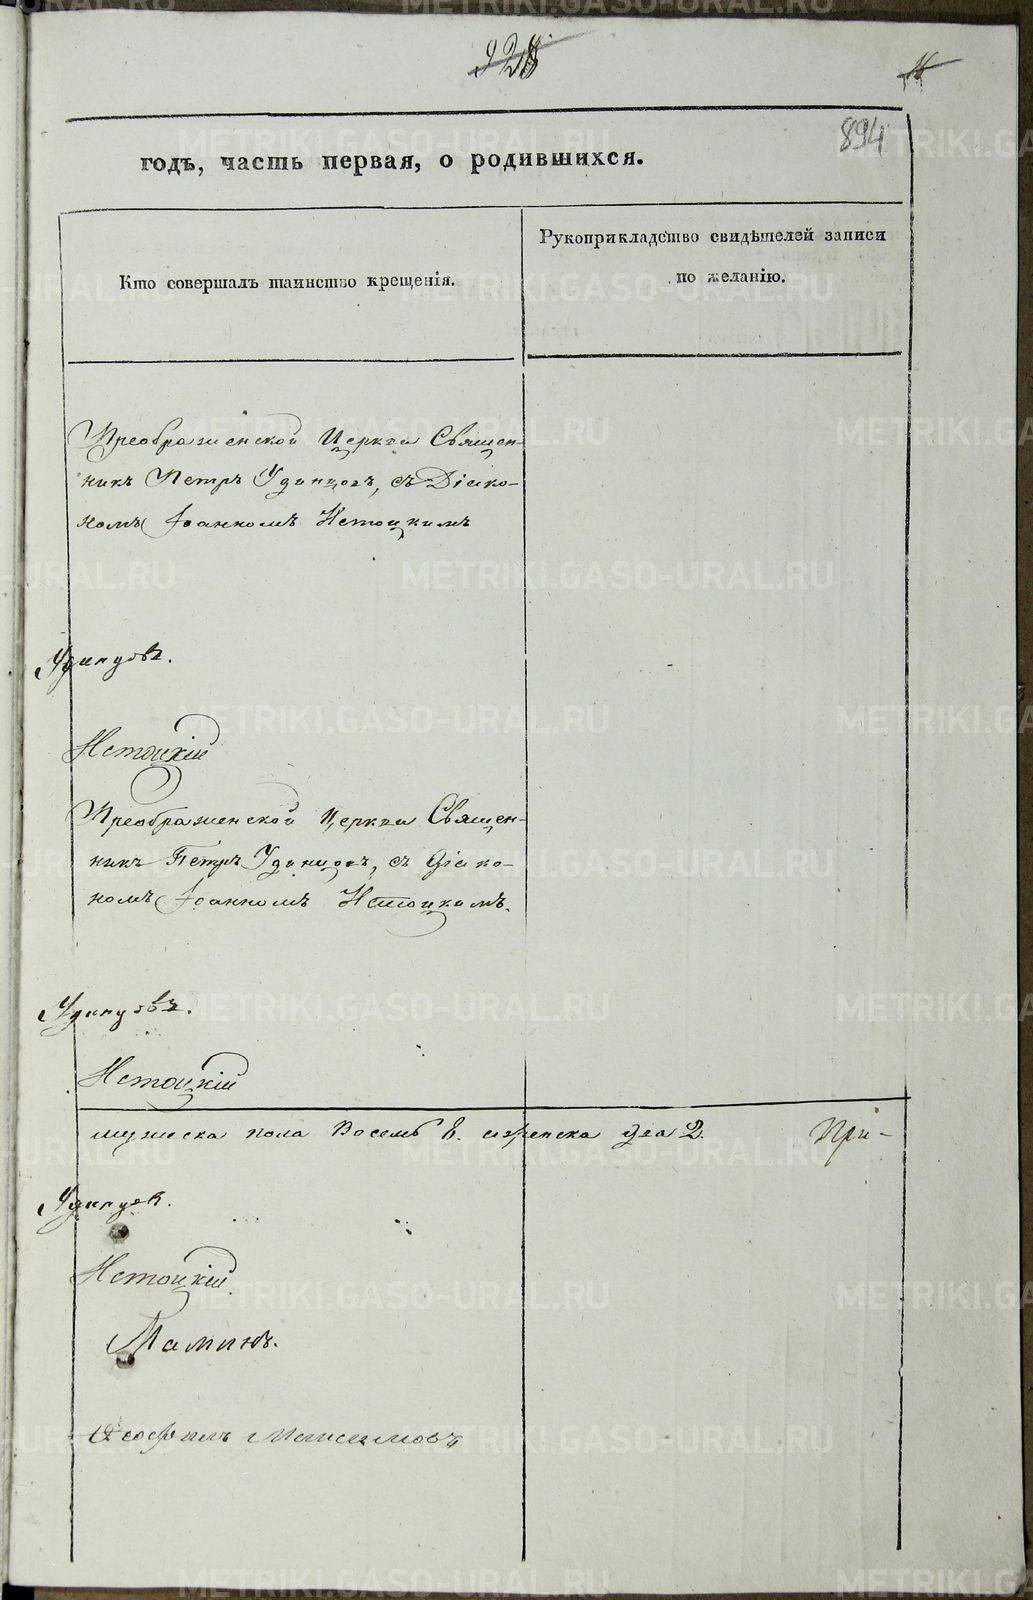 328
11
894
годъ, часть первая, о родившихся.
Кто совершалъ таинство крещенія.
Рукоприкладство свидѣтелей записи
по желанію.
Преображенской Церкви Священ-
никъ Петръ Удинцовъ, съ Діако-
номъ Іоанномъ Истоцкимъ
Удинцовъ.
Истоцкій
Преображенской Церкви Священ-
никъ Петръ Удинцовъ, съ Діако-
номъ Іоанномъ Истоцкимъ.
Удинцовъ.
Истоцкій
мужеска пола Восемь 8. а женска два 2. При-
Удинцов.
Истоцкій
Маминъ.
Ѳеофилъ Максимовъ
METRIKI.GASO-URAL.RU